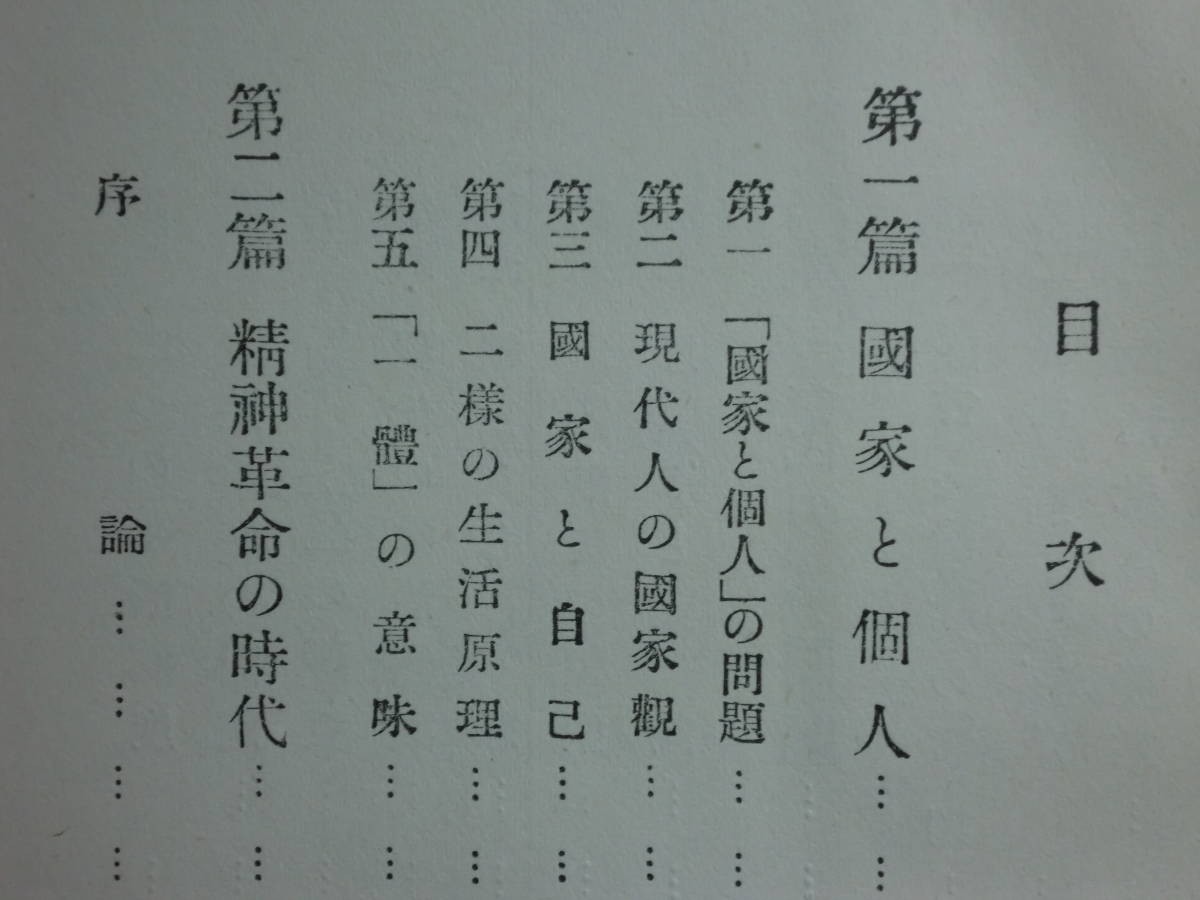 目次
第一篇 國家と個人……
第一 「國家と個人」の問題……
第二 現代人の國家觀……
第三 國家と自己……
第四 二樣の生活原理……
第五 「一體」の意味……
第二篇 精神革命の時代……
序論…………